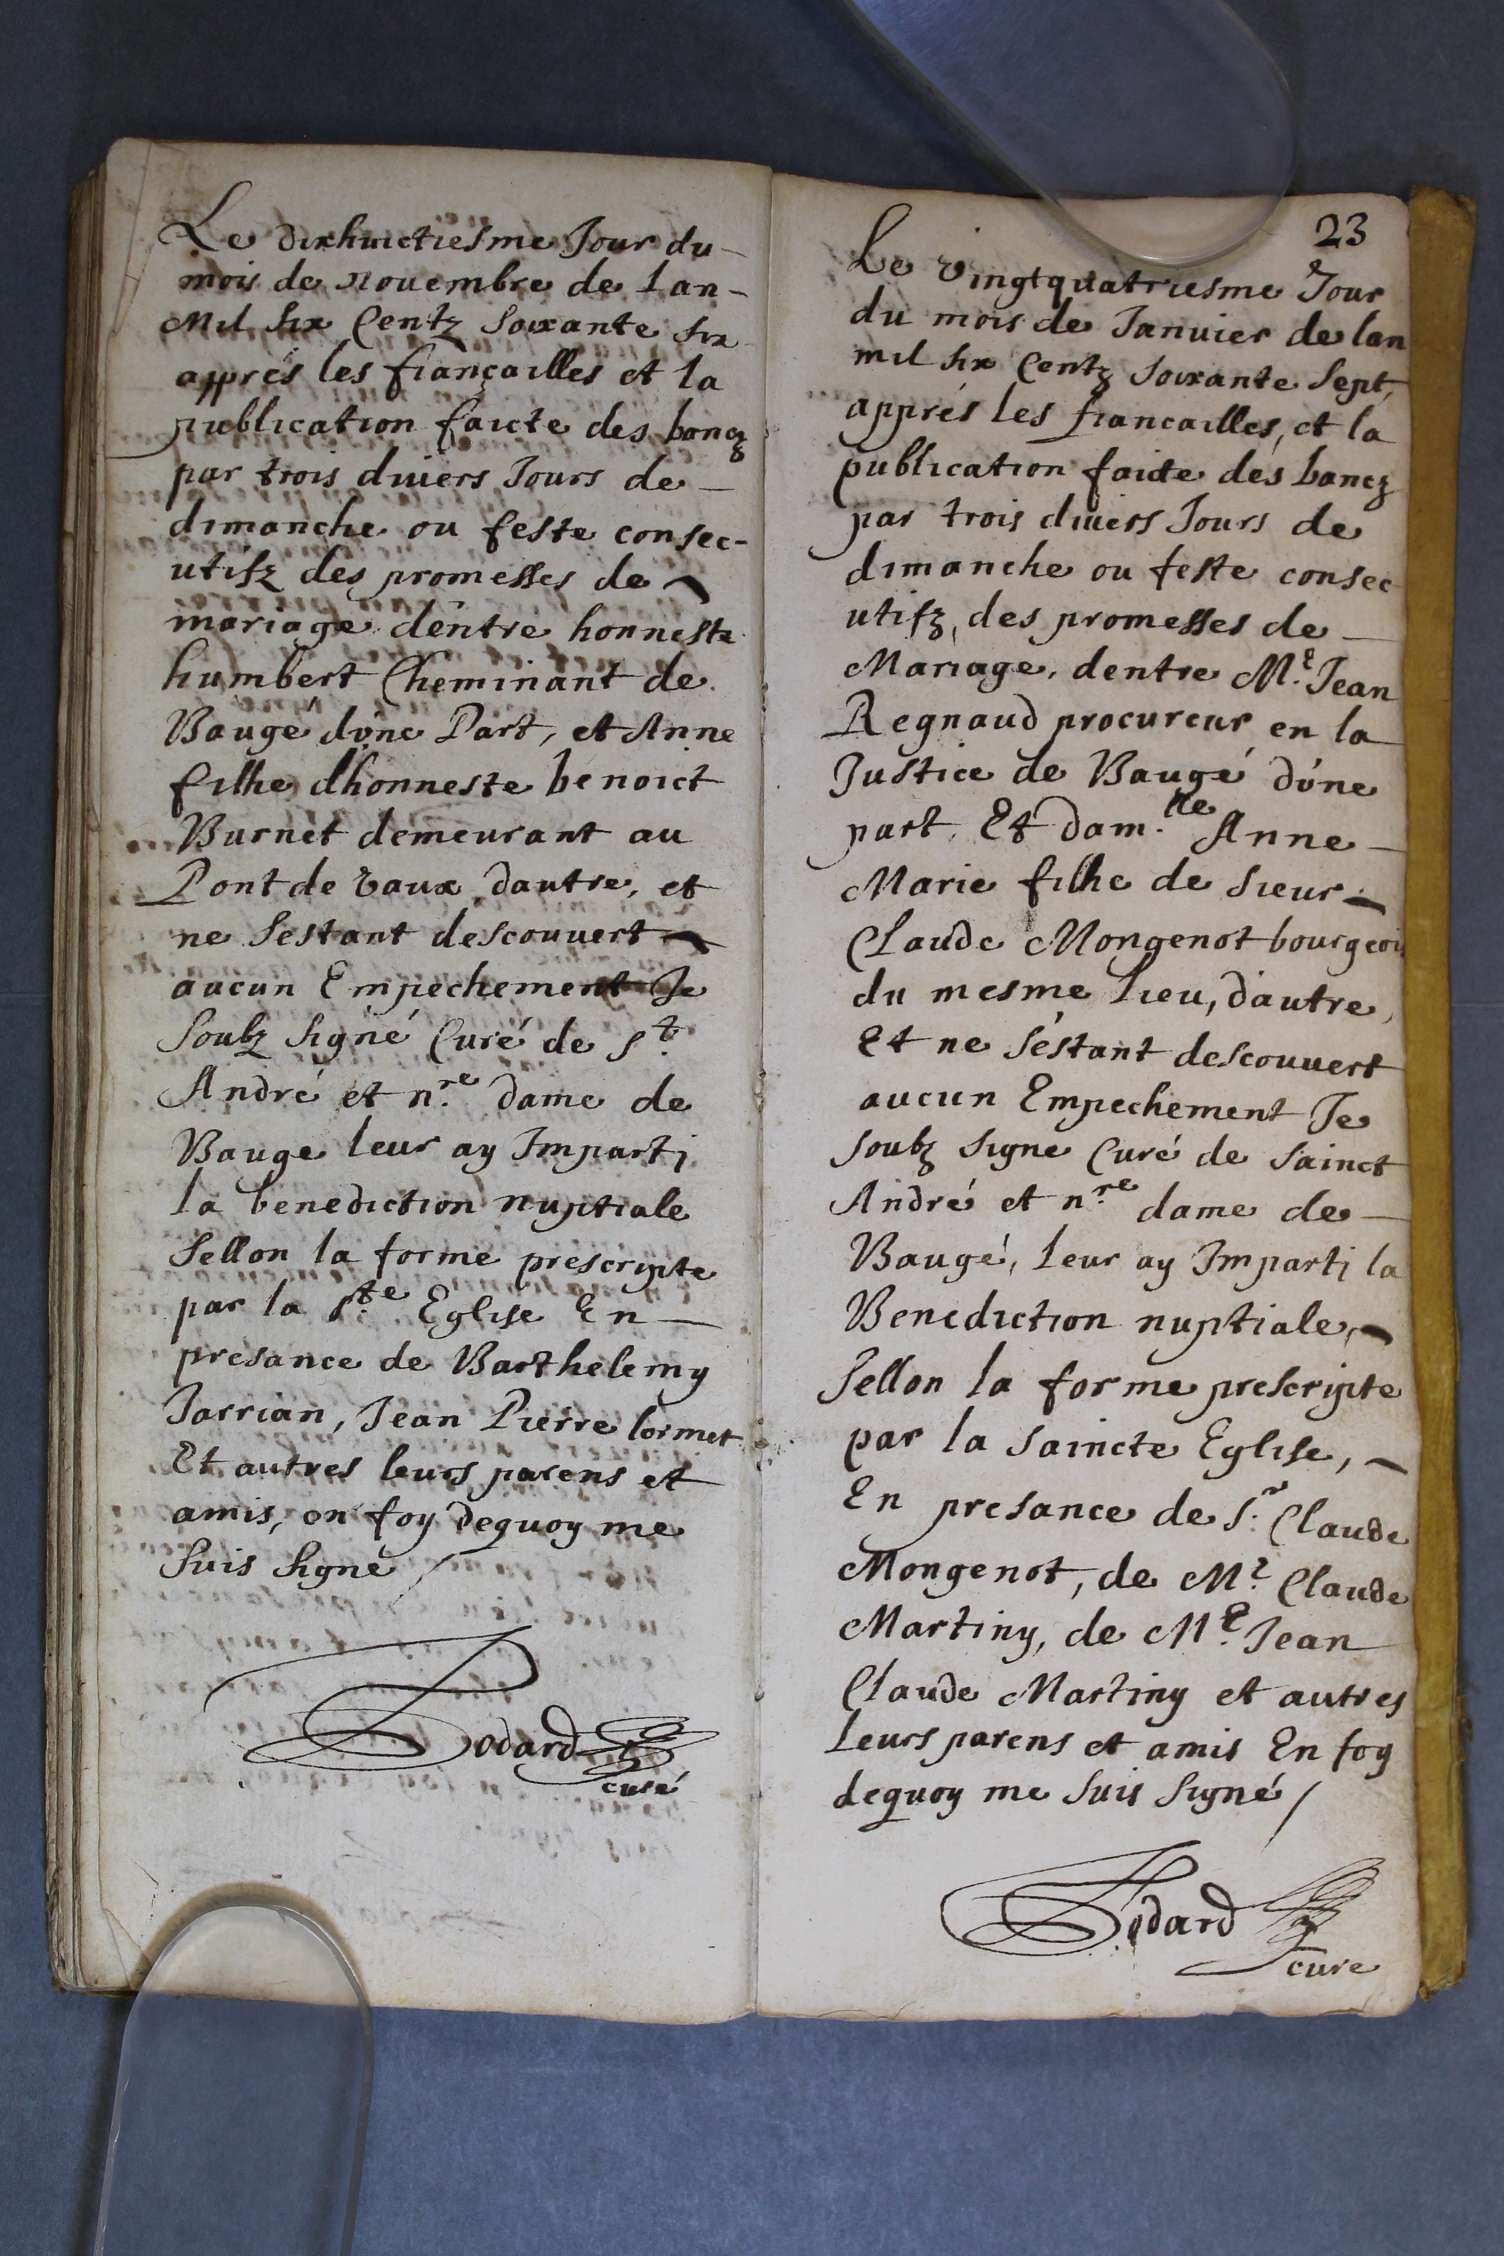 Le dixhuictiesme Jour du
mois de nouembre de lan
Mil six Centz soixante six
apprés les fiançailles et la
publication faicte des bancz
par trois diuers Jours de
dimanche ou feste consec-
utifz des promesses de
mariage d'entre honneste
humbert Cheminant de
Baugé d'une Part, et Anne
filhe d'honneste benoict
Burnet demeurant au
Pont de vaux dautre, et
ne sestant descouuert
aucun Empechement Je
soubz signé Curé de St.
André et n.re dame de
Bauge leur ay Imparti
la benediction nuptiale
sellon la forme prescripte
par la s.te Eglise En
presance de Barthelemy
Jarrian, Jean Pierre lormet
Et autres leurs parens et
amis, en foy dequoy me
suis signe /
Todard
curé
23
Le vingtquatriesme Jour
du mois de Januier de lan
mil six Centz soixante sept,
apprés les fiancailles, et la
publication faicte dés bancz
par trois diuers Jours de
dimanche ou feste consec
utifz, des promesses de
Mariage, dentre M.e Jean
Regnaud procureur en la
Justice de Baugé d'une
part. Et dam.lle Anne
Marie filhe de sieur
Claude Mongenot bourgeois
du mesme lieu, d'autre,
Et ne s'éstant descouuert
aucun Empechement Je
soubz signe Curé de sainct
André et n.re dame de
Baugé, leur ay Imparti la
Benediction nuptiale,
sellon la forme prescripte
par la saincte Eglise,
En presance de s.r Claude
Mongenot, de M.e Claude
Martiny, de M.e Jean
Claude Martiny et autres
leurs parens et amis En foy
dequoy me suis signé /
Todard
cure